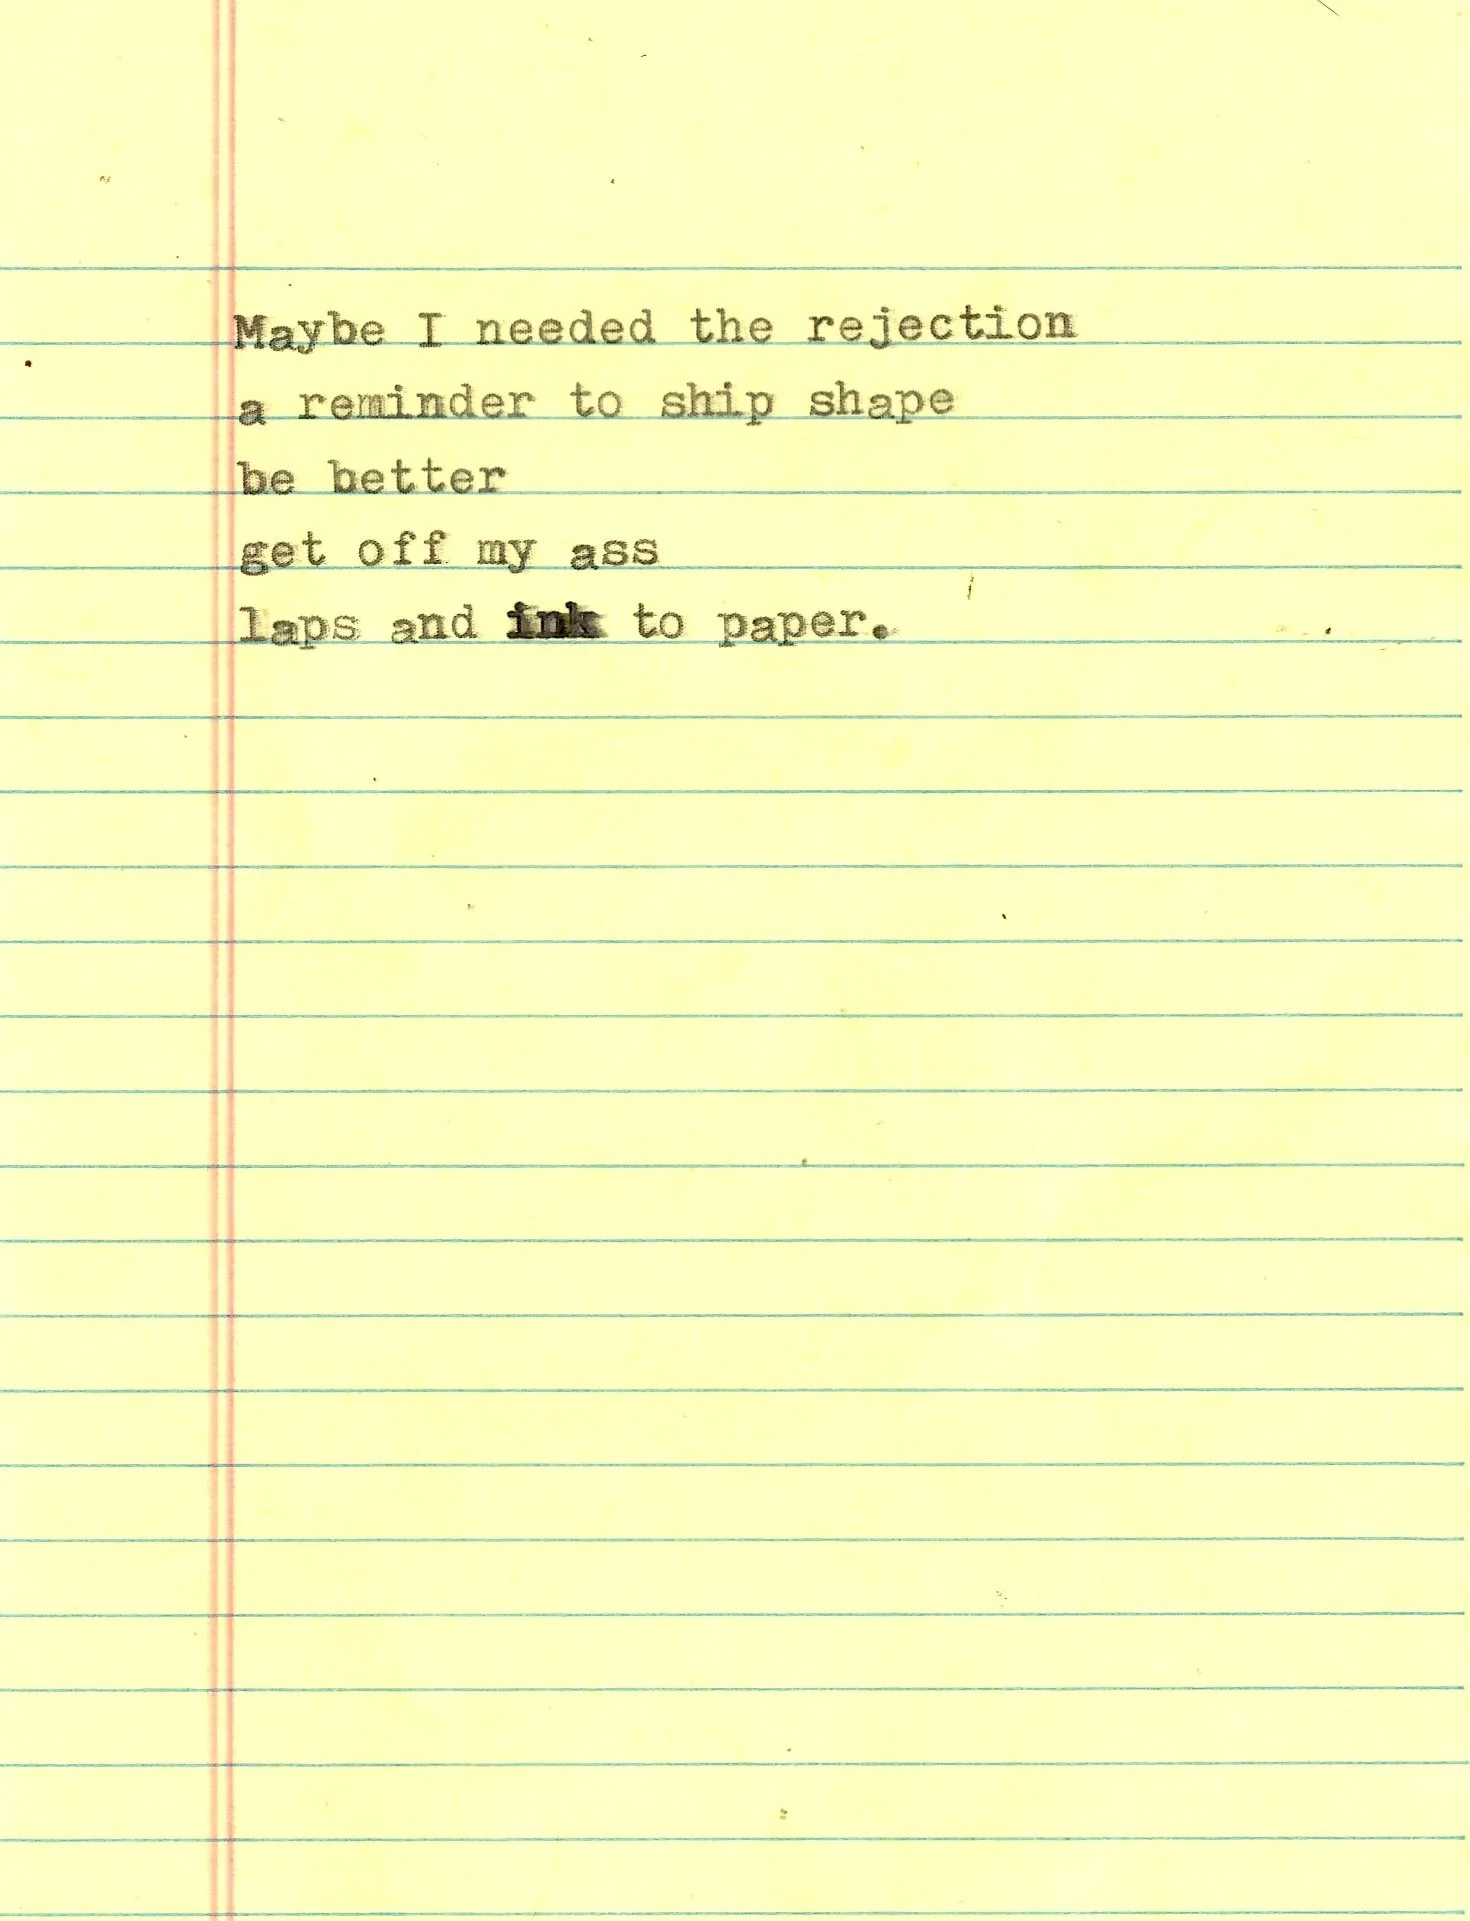 Maybe I needed the rejection
a reminder to ship shape
be better
get off my ass
laps and ink to paper.